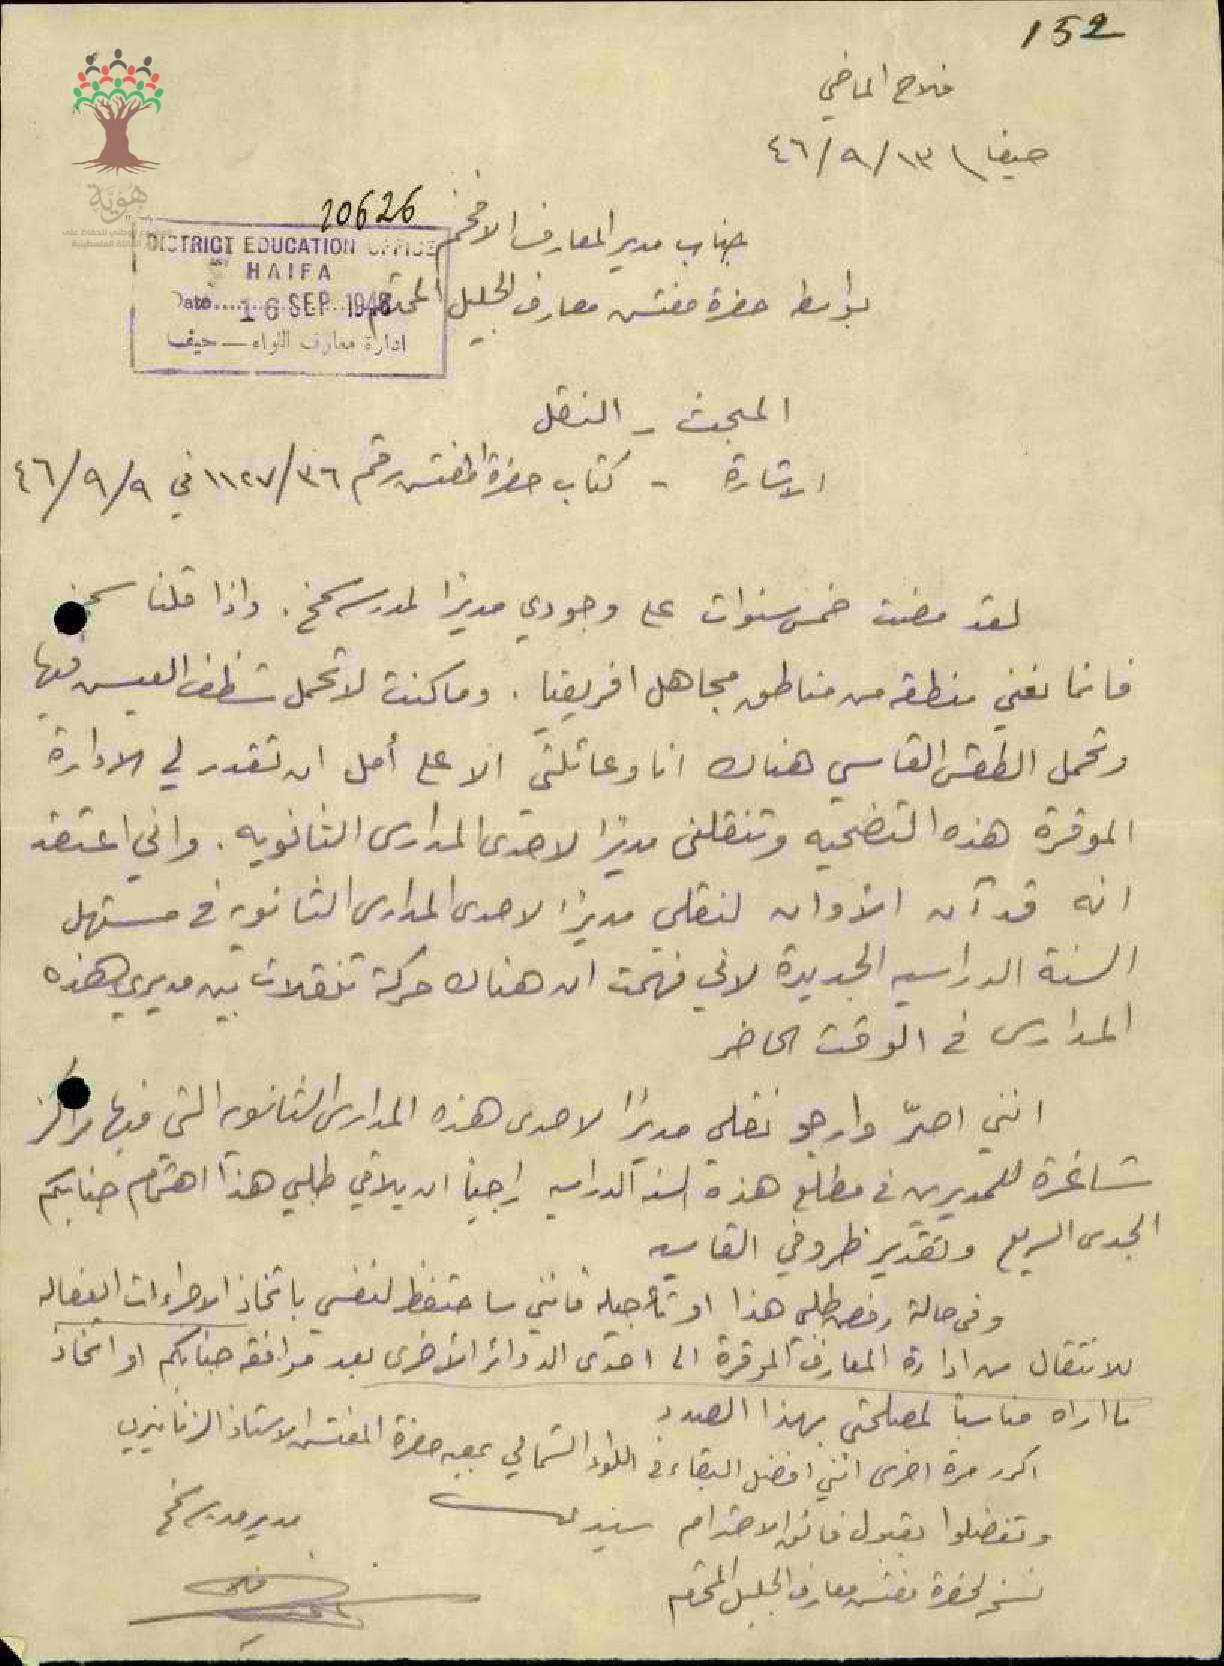 152
فلاح الماضي
حيفا ١٣/٩/٤٦
20626
جناب مدير المعارف الافخم
DISTRICT EDUCATION OFFICE
HAIFA
بواسطة حضرة مفتش معارف الجليل المحترم
Date 16 SEP 1946
ادارة معارف اللواء — حيفا
هَوِيَّة
المبحث - النقل
الاشارة - كتاب حضرة المفتش رقم ١١٢٧/٣٦ في ٩/٩/٤٦
لقد مضت خمس سنوات على وجودي مديرًا لمدرسة سمخ. واذا قلنا سمخ
فانما نعني منطقه من مناطق مجاهل افريقيا. وما كنت لاتحمل شظف العيش فيها
وتحمل الطقس القاسي هناك انا وعائلتي الا على أمل ان تقدر لي الادارة
الموقرة هذه التضحيه وتنقلني مديرًا لاحدى المدارس الثانويه. واني اعتقد
انه قد آن الأوان لنقلي مديرًا لاحدى المدارس الثانويه في مستهل
السنة الدراسيه الجديدة لاني فهمت ان هناك حركة تنقلات بين مديري هذه
المدارس في الوقت الحاضر
انني اصرّ وارجو نقلي مديرًا لاحدى هذه المدارس الثانويه التي فيها مراكز
شاغرة للمديرين في مطلع هذه السنه الدراسيه راجيًا ان يلاقي طلبي هذا اهتمام جنابكم
الجدى السريع وتقدير ظروفي القاسيه
وفي حالة رفض طلبي هذا او تأجيله فانني ساحتفظ لنفسي باتخاذ الاجراءات الفعاله
للانتقال من ادارة المعارف الموقرة الى احدى الدوائر الأخرى بعد موافقة جنابكم او اتخاذ
ما اراه مناسبًا لمصلحتي بهذا الصدد
اكرر مرة اخرى انني افضل البقاء في اللواء الشمالي بمعيه حضرة المفتش الاستاذ الزنانيري
وتفضلوا بقبول فائق الاحترام سيدي
مدير مدرسة سمخ
نسخه لحضرة مفتش معارف الجليل المحترم